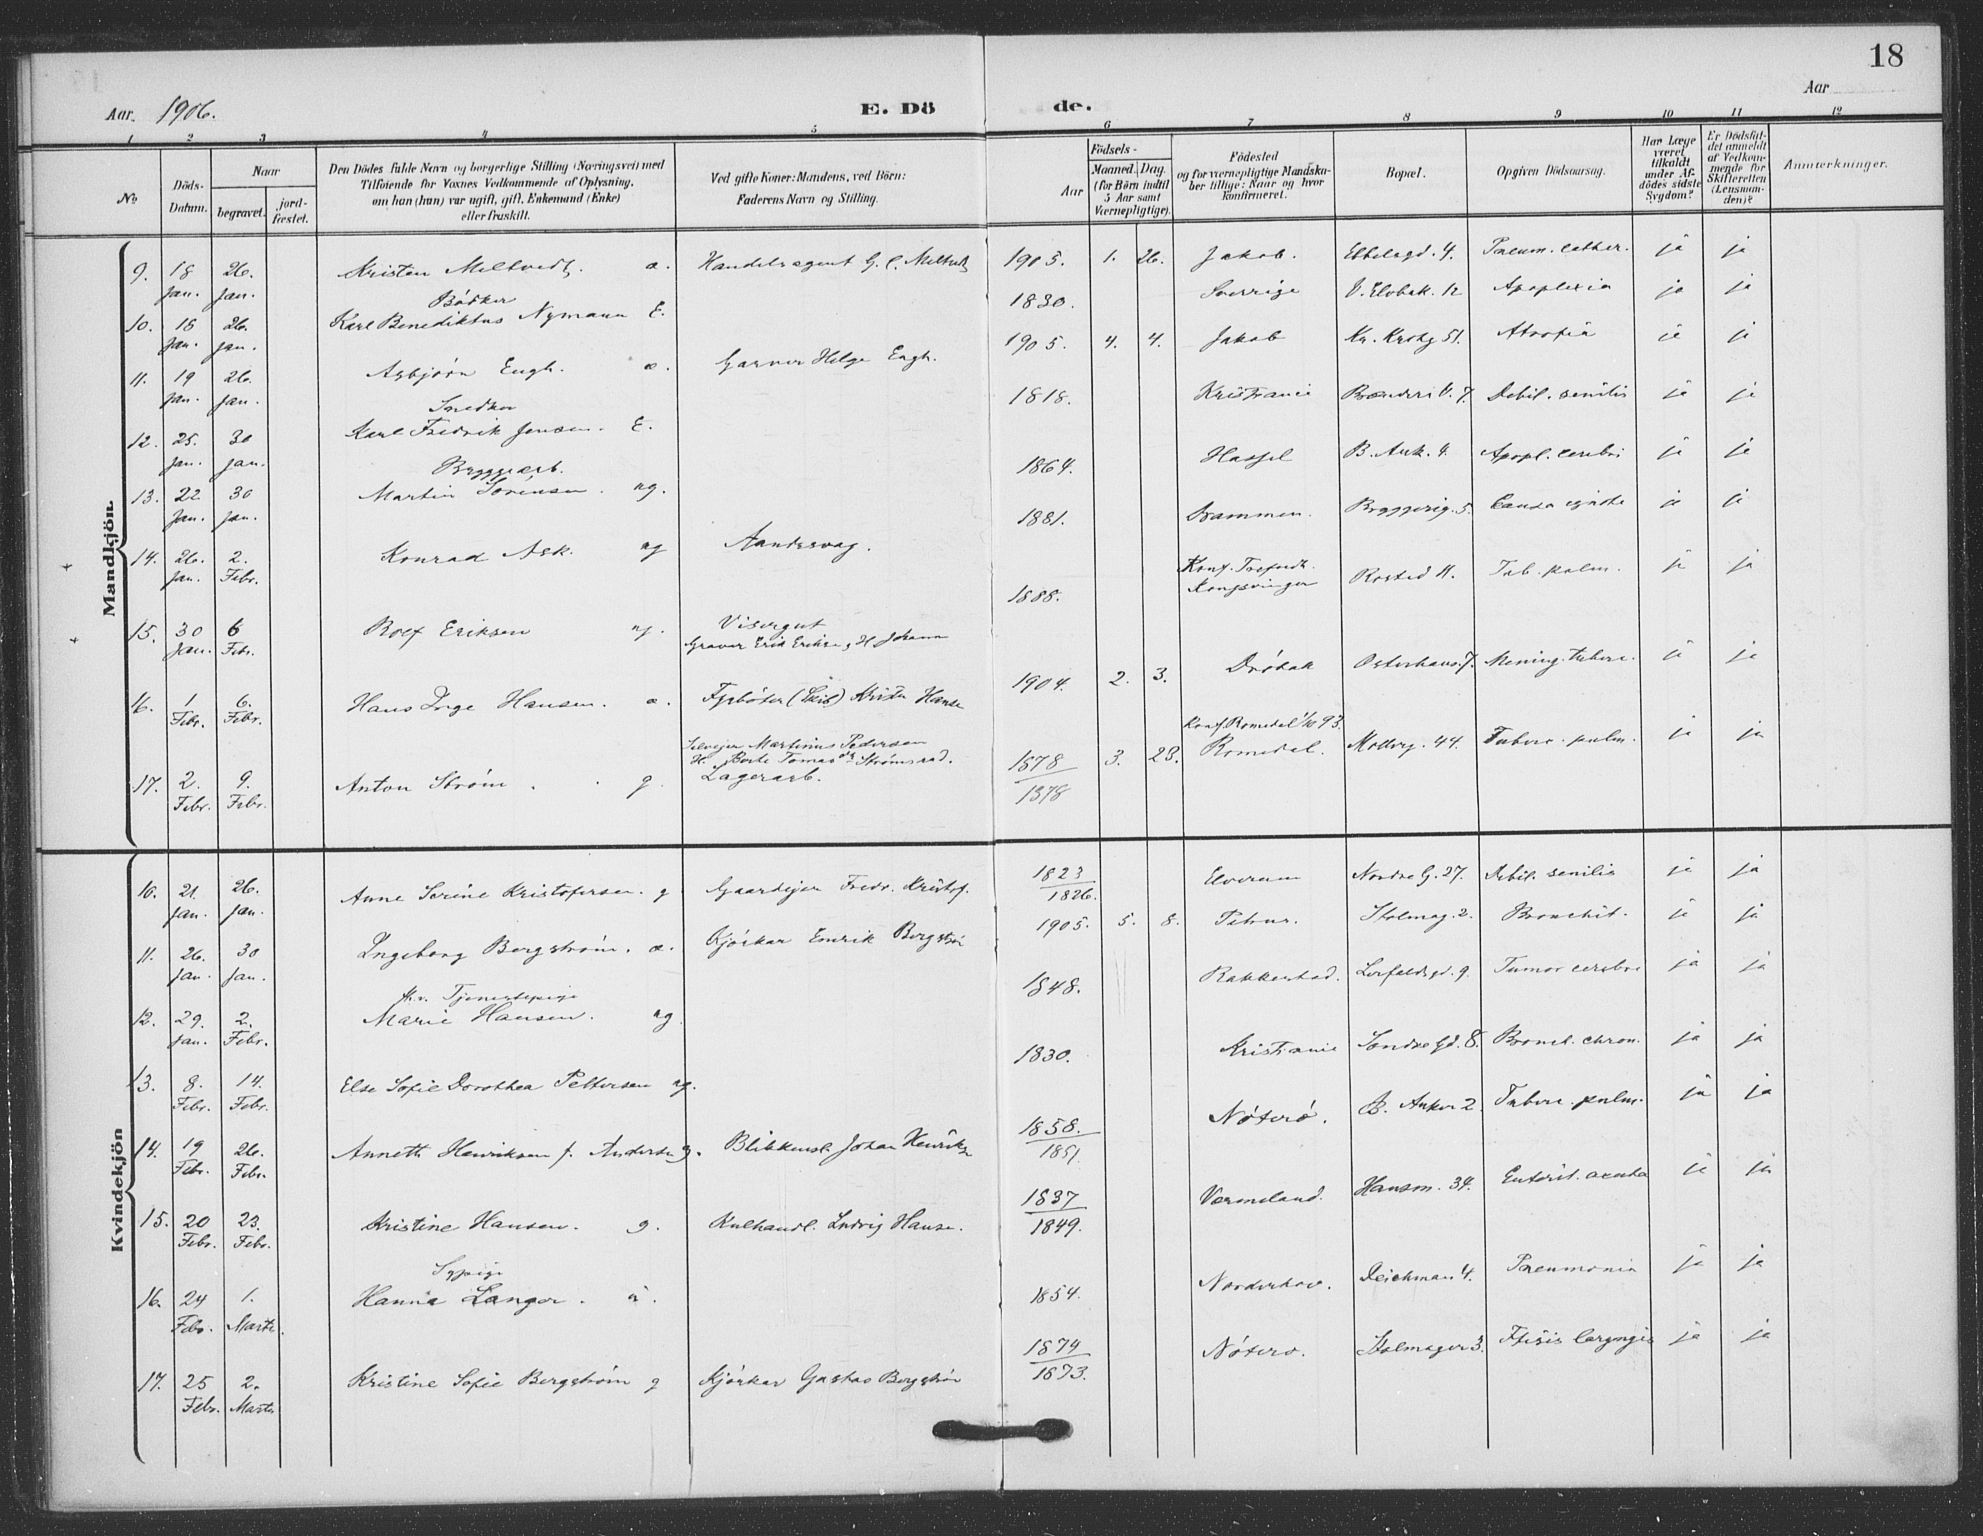 18
Aar 1906.
E. Dö de.
Aar
1 2 3 4 5 6 7 8 9 10 11 12
No
Döds-Datum.
Naar
begravet.
jord-fæstet.
Den Dödes fulde Navn og borgerlige Stilling (Næringsvei) med
Tilföiende för Voxnes Vedkommende af Oplysning,
om han (hun) var ugift, gift, Enkemand (Enke)
eller fraskilt.
Ved gifte Koner: Mandens, ved Börn:
Faderens Navn og Stilling.
Födsels-
Aar
Maaned. Dag.
(for Börn indtil
5 Aar samt
Værnepligtige).
Födested
og for værnepligtige Mandska-
ber tillige: Naar og hvor
konfirmeret.
Bopæl.
Opgiven Dödsaarsag.
Har Læge
været
tilkaldt
under Af-
dödes sidste
Sygdom?
Er Dödsfal-
det anmeldt
af Vedkom-
mende for
Skifteretten
(Lensman-
den)?
Anmærkninger.
Mandkjön.
9. 18 Jan. 26. Jan. Kristen Meltvedt. a. Handelsagent G. C. Meltvedt 1905. 1. 26. Jakob. Ebbelsgd. 4. Pneum. cathar. ja ja
10. 18 Jan. 26. Jan. Bödker Karl Benediktus Nymann E. 1830. Sverrige V. Elvbak. 12 Apoplexia ja ja
11. 19 Jan. 26. Jan. Asbjörn Engh. a. Garver Helge Engh. 1905. 4. 4. Jakob Kr. Krohg 51. Atrofia ja ja
12. 25. Jan. 30 Jan. Snedker Karl Fredrik Jensen. E. 1818. Kristiania 7. Debil. senilis ja ja
13. 22 Jan. 30 Jan. Bryggearb. Martin Sörensen. ug. 1864. Hassel B. Ank. 4. Apopl. cerebri ja ja
14. 26. Jan. 2. Febr. Konrad Ask. ug Aandssvag. 1881. Drammen. Bryggerig. 5. Causa ignota ja ja
15. 30 Jan. 6 Febr. Rolf Eriksen ug. Visergut Graver Erik Eriksen, H. Johanna 1888. Konf. Kongsvinger Rosted 11. Tub. pulm. ja ja
16. 1 Febr. 6. Febr. Hans Inge Hansen. a. Fyrböter (Skib) Hansen 1904. 2. 3. Dröbak Osterhaus. 7. Mening. tuberc. ja ja
17. 2. Febr. 9. Febr. Anton Ström. g. Selveier Martinus Pedersen H. Berte Tomasdr. Strömsrud. Lagerarb. 1878 / 1878 3. 23. Konf. Romedal 1/10 93. Romedal. Motzfg. 44. Tuberc. pulm. ja ja
Kvindekjön
10. 21. Jan. 26. Jan. Anne Serine Kristofersen. g Gaardejer Fredr. Kristof. 1823 / 1826. Elverum Nordre G. 27. Debil. senilis ja ja
11. 26. Jan. 30 Jan. Ingeborg Bergström. a. Kjörkar Emrik Bergström 1905. 5. 8. Petrus. Stolmag. 2. Bronchit. ja ja
12. 29. Jan. 2. Febr. fhv. Tjenestepige Marie Hansen. ug. 1848. Rakkestad. Lorfeldsgd. 9. Tumor cerebri ja ja
13. 8. Febr. 14. Febr. Else Sofie Dorothea Pettersen ug. 1830. Kristiania Søndre Gd. 8. Bronch. chron. ja ja
14. 19 Febr. 26. Febr. Annette Henriksen f. Andersen g. Blikkensl. Johan Henriksen 1858. / 1851. Nöterö. B. Anker 2. Tuberc. pulm. ja ja
15. 20 Febr. 23. Febr. Kristine Hansen. g. Kulhandl. Ludvig Hansen. 1837 / 1849. Vermeland. Hansm. 34. Enterit. acuta ja ja
16. 24 Febr. 1. Marts. Sypige Hanna Langer. u. 1854. Norderhov. Deichman 4. Pneumonia ja ja
17. 25 Febr. 2. Marts. Kristine Sofie Bergström g Kjörkar Gustav Bergström 1874 / 1873. Nöterö. Stolmager 3. Ftisis laryngis ja ja